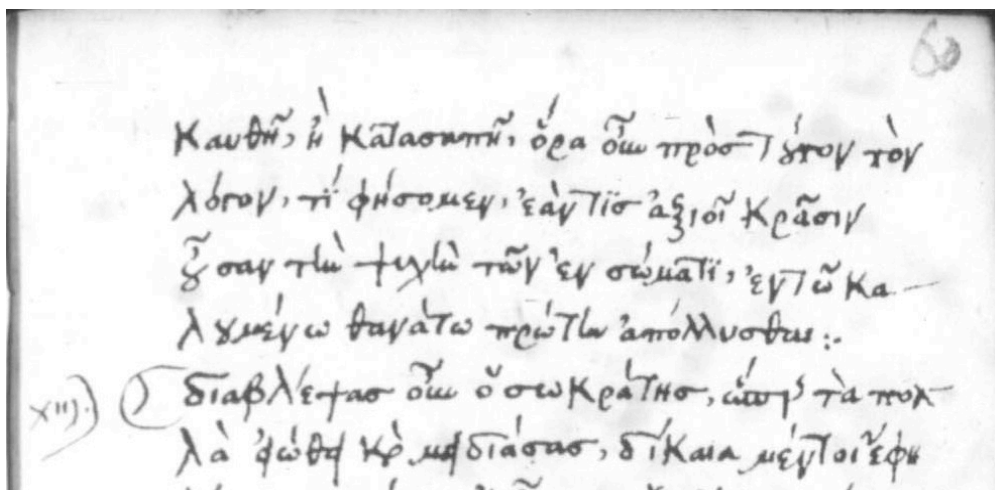 60
καυθῆ, ἢ κατασαπῆ, ὅρα οὖν πρὸς τοῦτον τὸν
λόγον, τί φήσομεν, ἐάν τϊς ἀξιοῖ κρᾶσιν
οὖσαν τὴν ψυχὴν τῶν ἐν σώματϊ, ἐν τῶ κα
λουμένω θανάτω πρώτην ἀπόλλυσθαι:.
xiij.) διαβλέψας οὖν ὁ σωκράτης, ὥσπερ τὰ πολ
λὰ εἰώθει καὶ μειδιάσας, δίκαια μέντοι ἔφη